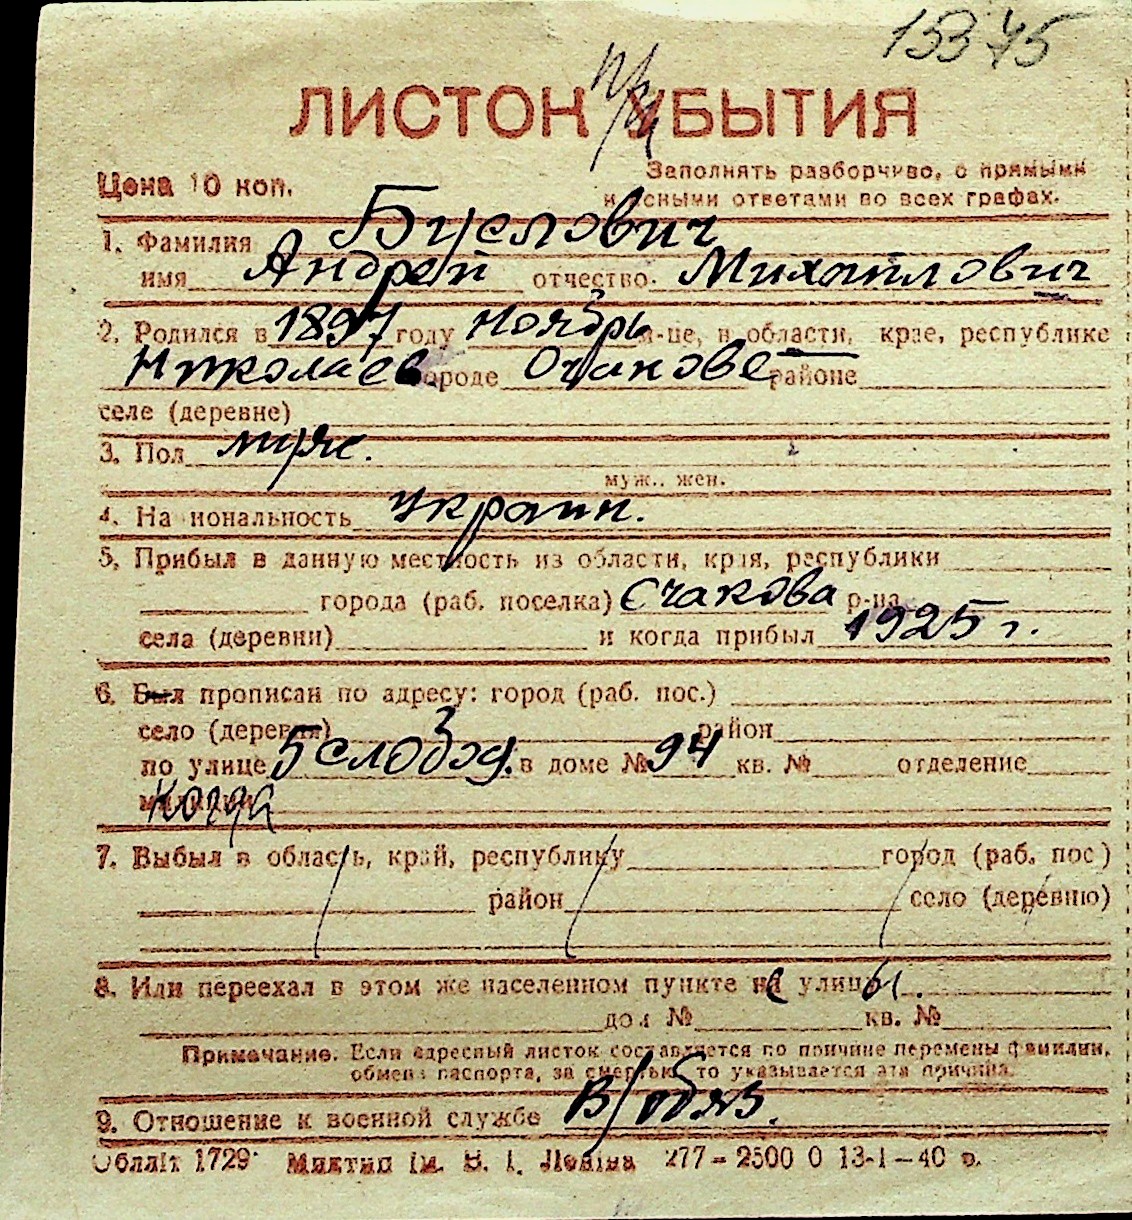 15345
ЛИСТОК УБЫТИЯ
Цена 10 коп.
Заполнять разборчиво, с прямыми
и ясными ответами во всех графах.
1. Фамилия Буслович
имя Андрей отчество Михайлович
2. Родился в 1897 году Ноябрь м-це, в области, крае, республике
Николаев городе Очакове районе
селе (деревне)
3. Пол муж.
муж.. жен.
4. Национальность Украин.
5. Прибыл в данную местность из области, края, республики
города (раб. поселка) Очакова р-на
села (деревни) и когда прибыл 1925 г.
6. Был прописан по адресу: город (раб. пос.)
село (деревня) район
по улице 3 Слобод. в доме № 94 кв. № отделение
милиции Когда
7. Выбыл в область, край, республику город (раб. пос)
район село (деревню)
8. Или переехал в этом же населенном пункте на улицы.
дом № кв. №
Примечание. Если адресный листок составляется по причине перемены фамилии,
обмена паспорта, за смертью, то указывается эта причина.
9. Отношение к военной службе В/обяз.
Облліт 1729 Миктип ім. В. І. Леніна 277-2500 0 13-1-40 р.